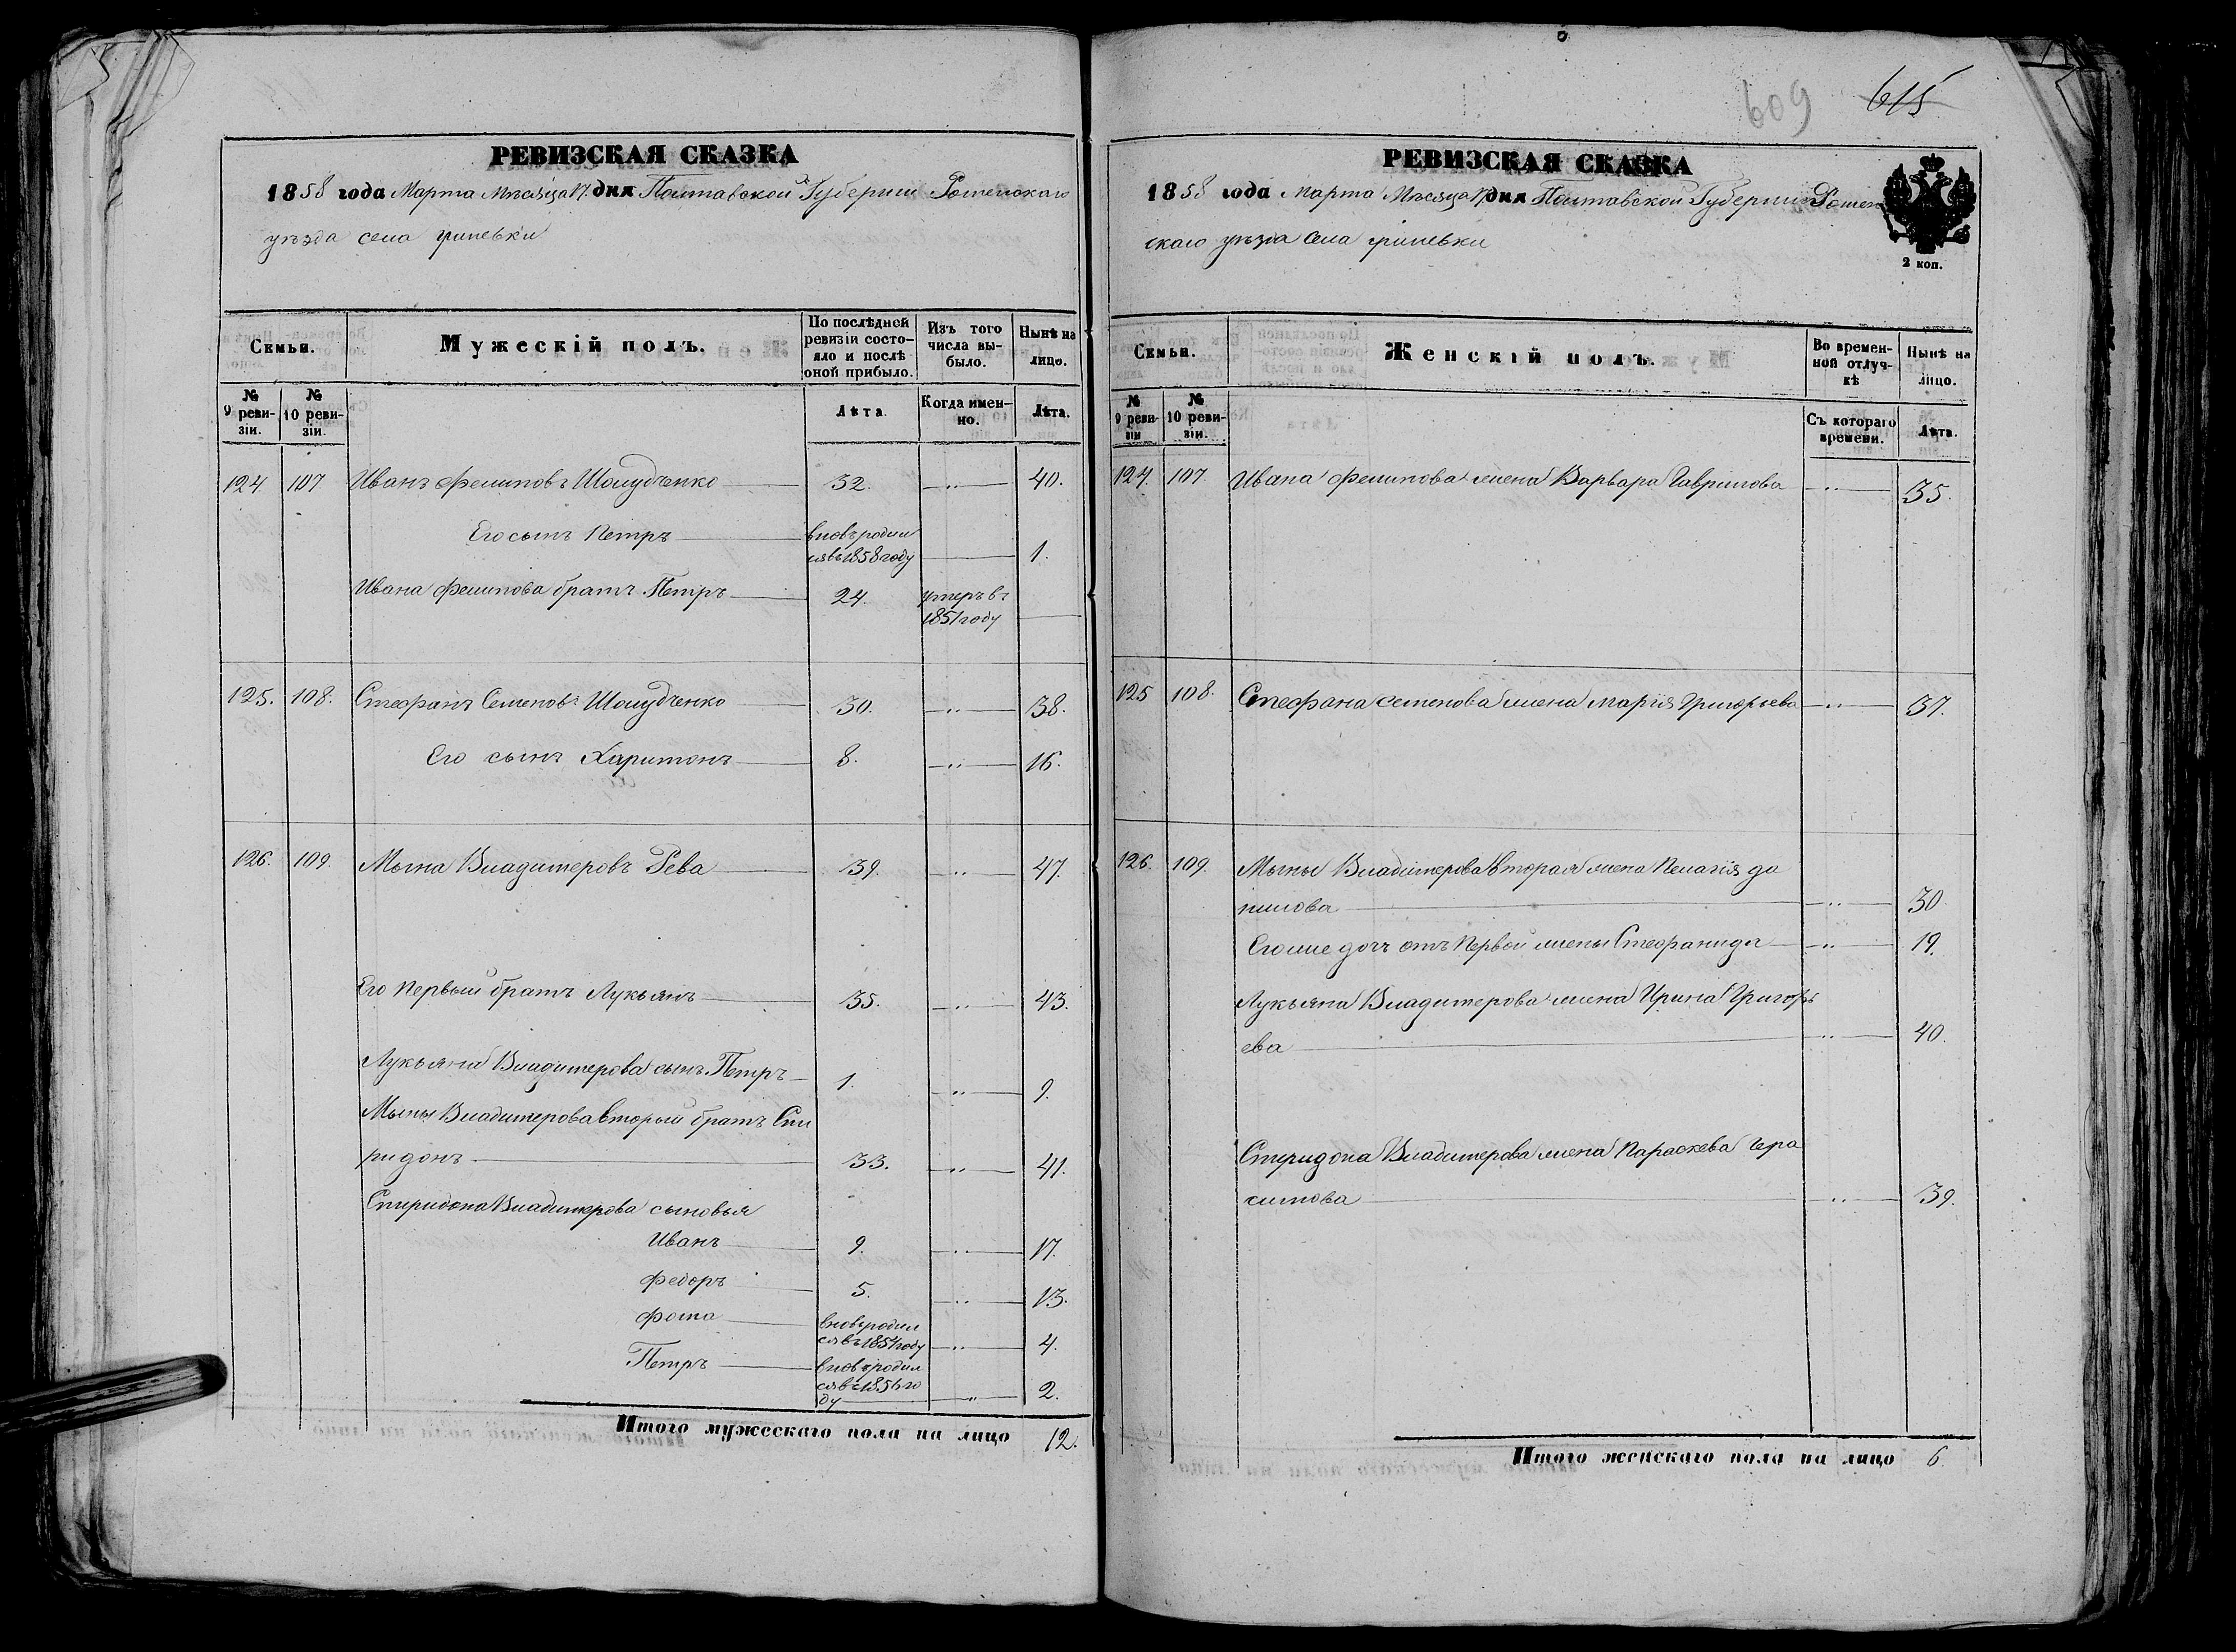 РЕВИЗСКАЯ СКАЗКА
1858 года Марта Мѣсяца 17 дня Полтавской Губерніи Роменскаго
уѣзда села гриневки
Семьи.
Мужескій полъ.
По послѣдней ревизіи состояло и послѣ оной прибыло.
Изъ того числа выбыло.
Нынѣ на лицо.
№ 9 ревизіи.
№ 10 ревизіи.
Лѣта
Когда именно.
Лѣта.
124. 107. Иванъ Фелиповъ Шолудченко 32. „ 40.
Его сынъ Петръ вновь родился въ 1858 году 1.
Ивана Фелипова братъ Петръ 24. умеръ въ 1851 году
125. 108. Стефанъ Семеновъ Шолудченко 30. „ 38.
Его сынъ Харитонъ 8. „ 16.
126. 109. Мына Владимеровъ Рева 39. „ 47.
Его Первый братъ Лукьянъ 35. „ 43.
Лукьяна Владимерова сынъ Петръ 1. „ 9.
Мыны Владимерова вторый братъ Спи
ридонъ 33. „ 41.
Спиридона Владимерова сыновья
Иванъ 9. „ 17.
Федоръ 5. „ 13.
Фома вновь родился въ 1854 году „ 4.
Петръ вновь родился въ 1856 году „ 2.
Итого мужескаго пола на лицо 12.
609 615
РЕВИЗСКАЯ СКАЗКА
1858 года Марта Мѣсяца 17 дня Полтавской Губерніи Ромен
скаго уѣзда села гриневки
2 коп.
Семьи.
Женскій полъ.
Во временной отлучкѣ
Нынѣ на лицо.
№ 9 ревизіи
№ 10 ревизіи.
Съ котораго времени.
Лѣта.
124. 107. Ивана Фелипова жена Варвара Гаврилова „ 35.
125 108. Стефана Семенова жена Марія Григорьева „ 37.
126. 109. Мыны Владимерова вторая жена Пелагія да
нилова „ 30
Его же доч отъ Первой жены Стефанида „ 19.
Лукьяна Владимерова жена Ирина Григорь
ева „ 40.
Спиридона Владимерова жена Параскева Гера
симова „ 39.
Итого женскаго пола на лицо 6